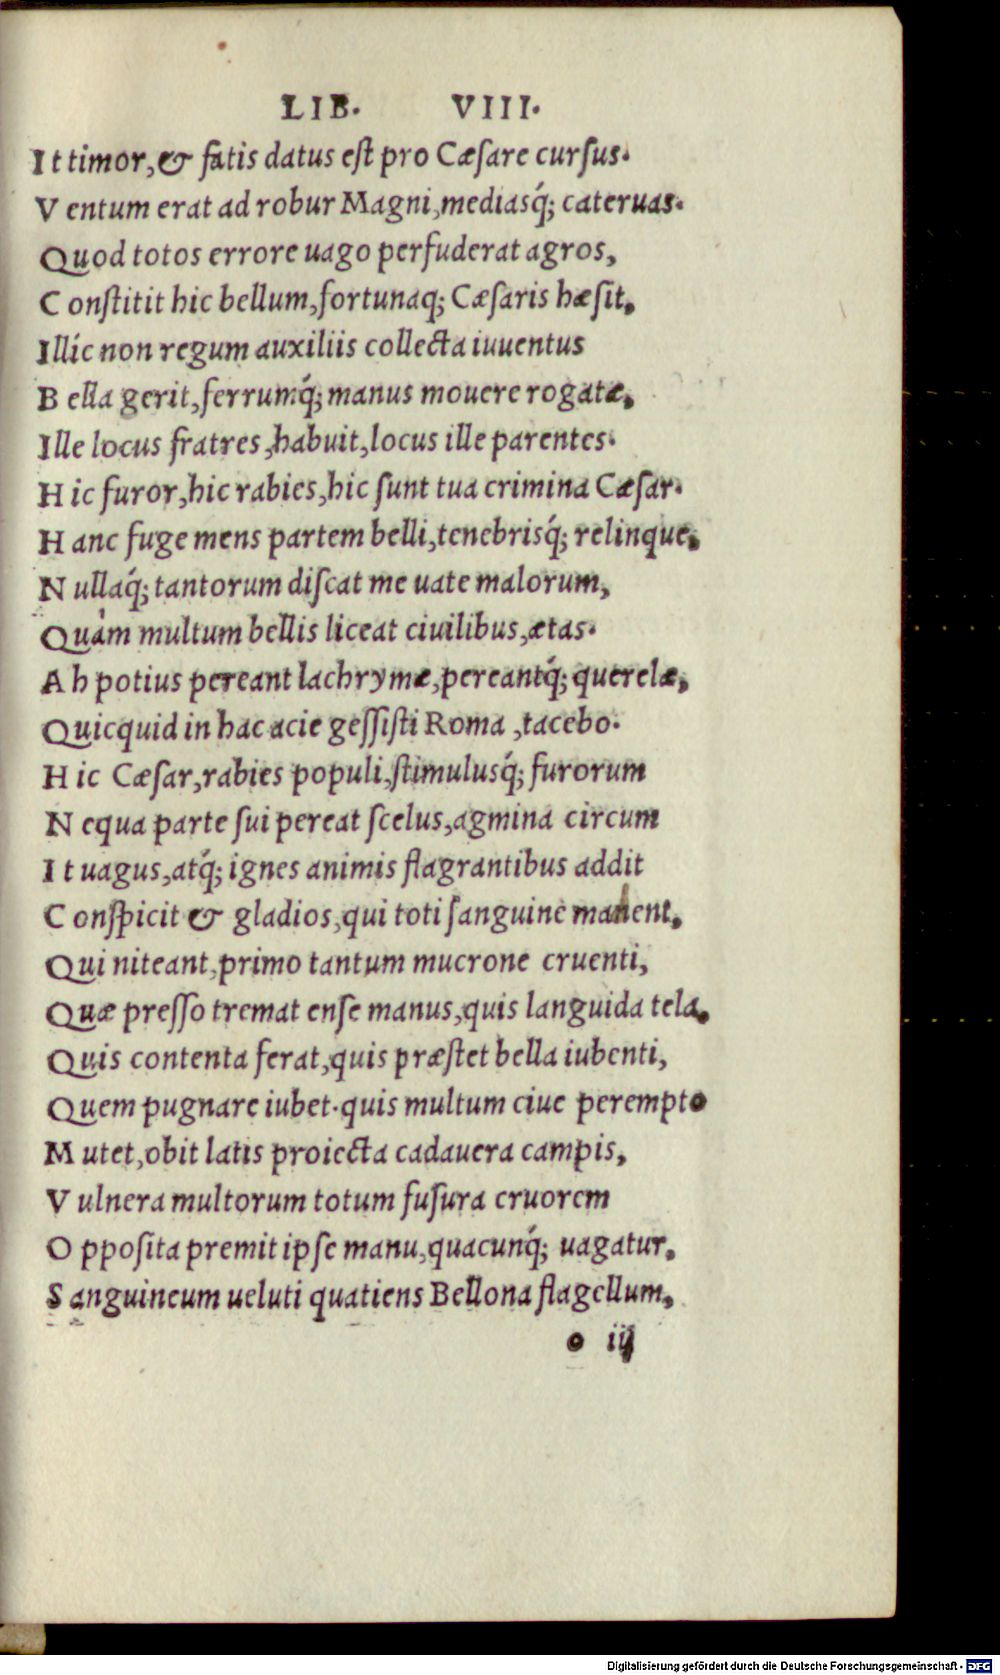 LIB. VIII.
It timor, & fatis datus est pro Cæsare cursus.
Ventum erat ad robur Magni, mediasq́; cateruas.
Quod totos errore uago perfuderat agros,
Constitit hic bellum, fortunaq; Cæsaris hæsit,
Illíc non regum auxiliis collecta iuuentus
Bella gerit, ferrumq́; manus mouere rogatæ,
Ille locus fratres, habuit, locus ille parentes.
Hic furor, hic rabies, hic sunt tua crimina Cæsar.
Hanc fuge mens partem belli, tenebrisq́; relinque,
Nullaq́; tantorum discat me uate malorum,
Quàm multum bellis liceat ciuilibus, ætas.
Ah potius pereant lachrymæ, pereantq́; querelæ,
Quicquid in hac acie gessisti Roma, tacebo.
Hic Cæsar, rabies populi, stimulusq́; furorum
Nequa parte sui pereat scelus, agmina circum
It uagus, atq́; ignes animis flagrantibus addit
Conspicit & gladios, qui toti sanguine manent,
Qui niteant, primo tantum mucrone cruenti,
Quæ presso tremat ense manus, quis languida tela,
Quis contenta ferat, quis præstet bella iubenti,
Quem pugnare iubet. quis multum ciue perempto
Mutet, obit latis proiecta cadauera campis,
Vulnera multorum totum fusura cruorem
Opposita premit ipse manu, quacunq́; uagatur,
Sanguineum ueluti quatiens Bellona flagellum,
o iij
Digitalisierung gefördert durch die Deutsche Forschungsgemeinschaft - DFG